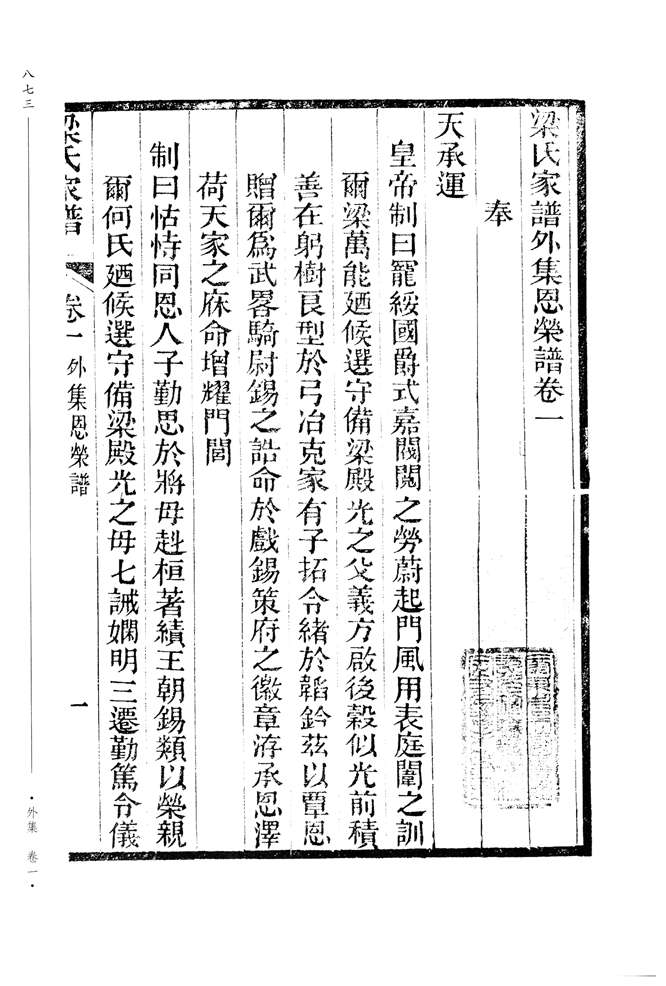 梁氏家譜外集恩榮譜卷一
奉
天承運
皇帝制曰寵綏國爵式嘉閥閱之勞蔚起門風用表庭闈之訓
爾梁萬能廼候選守備梁殿光之父義方啟後穀似光前積
善在躬樹良型於弓冶克家有子拓令緒於韜鈐茲以覃恩
贈爾爲武畧騎尉錫之誥命於戲錫策府之徽章洊承恩澤
荷天家之庥命增耀門閭
制曰怙恃同恩人子勤思於將母赳桓著績王朝錫類以榮親
爾何氏廼候選守備梁殿光之母七誡嫻明三遷勤篤令儀
梁氏家譜 卷一 外集恩榮譜 一
八七三
·外集 卷一·